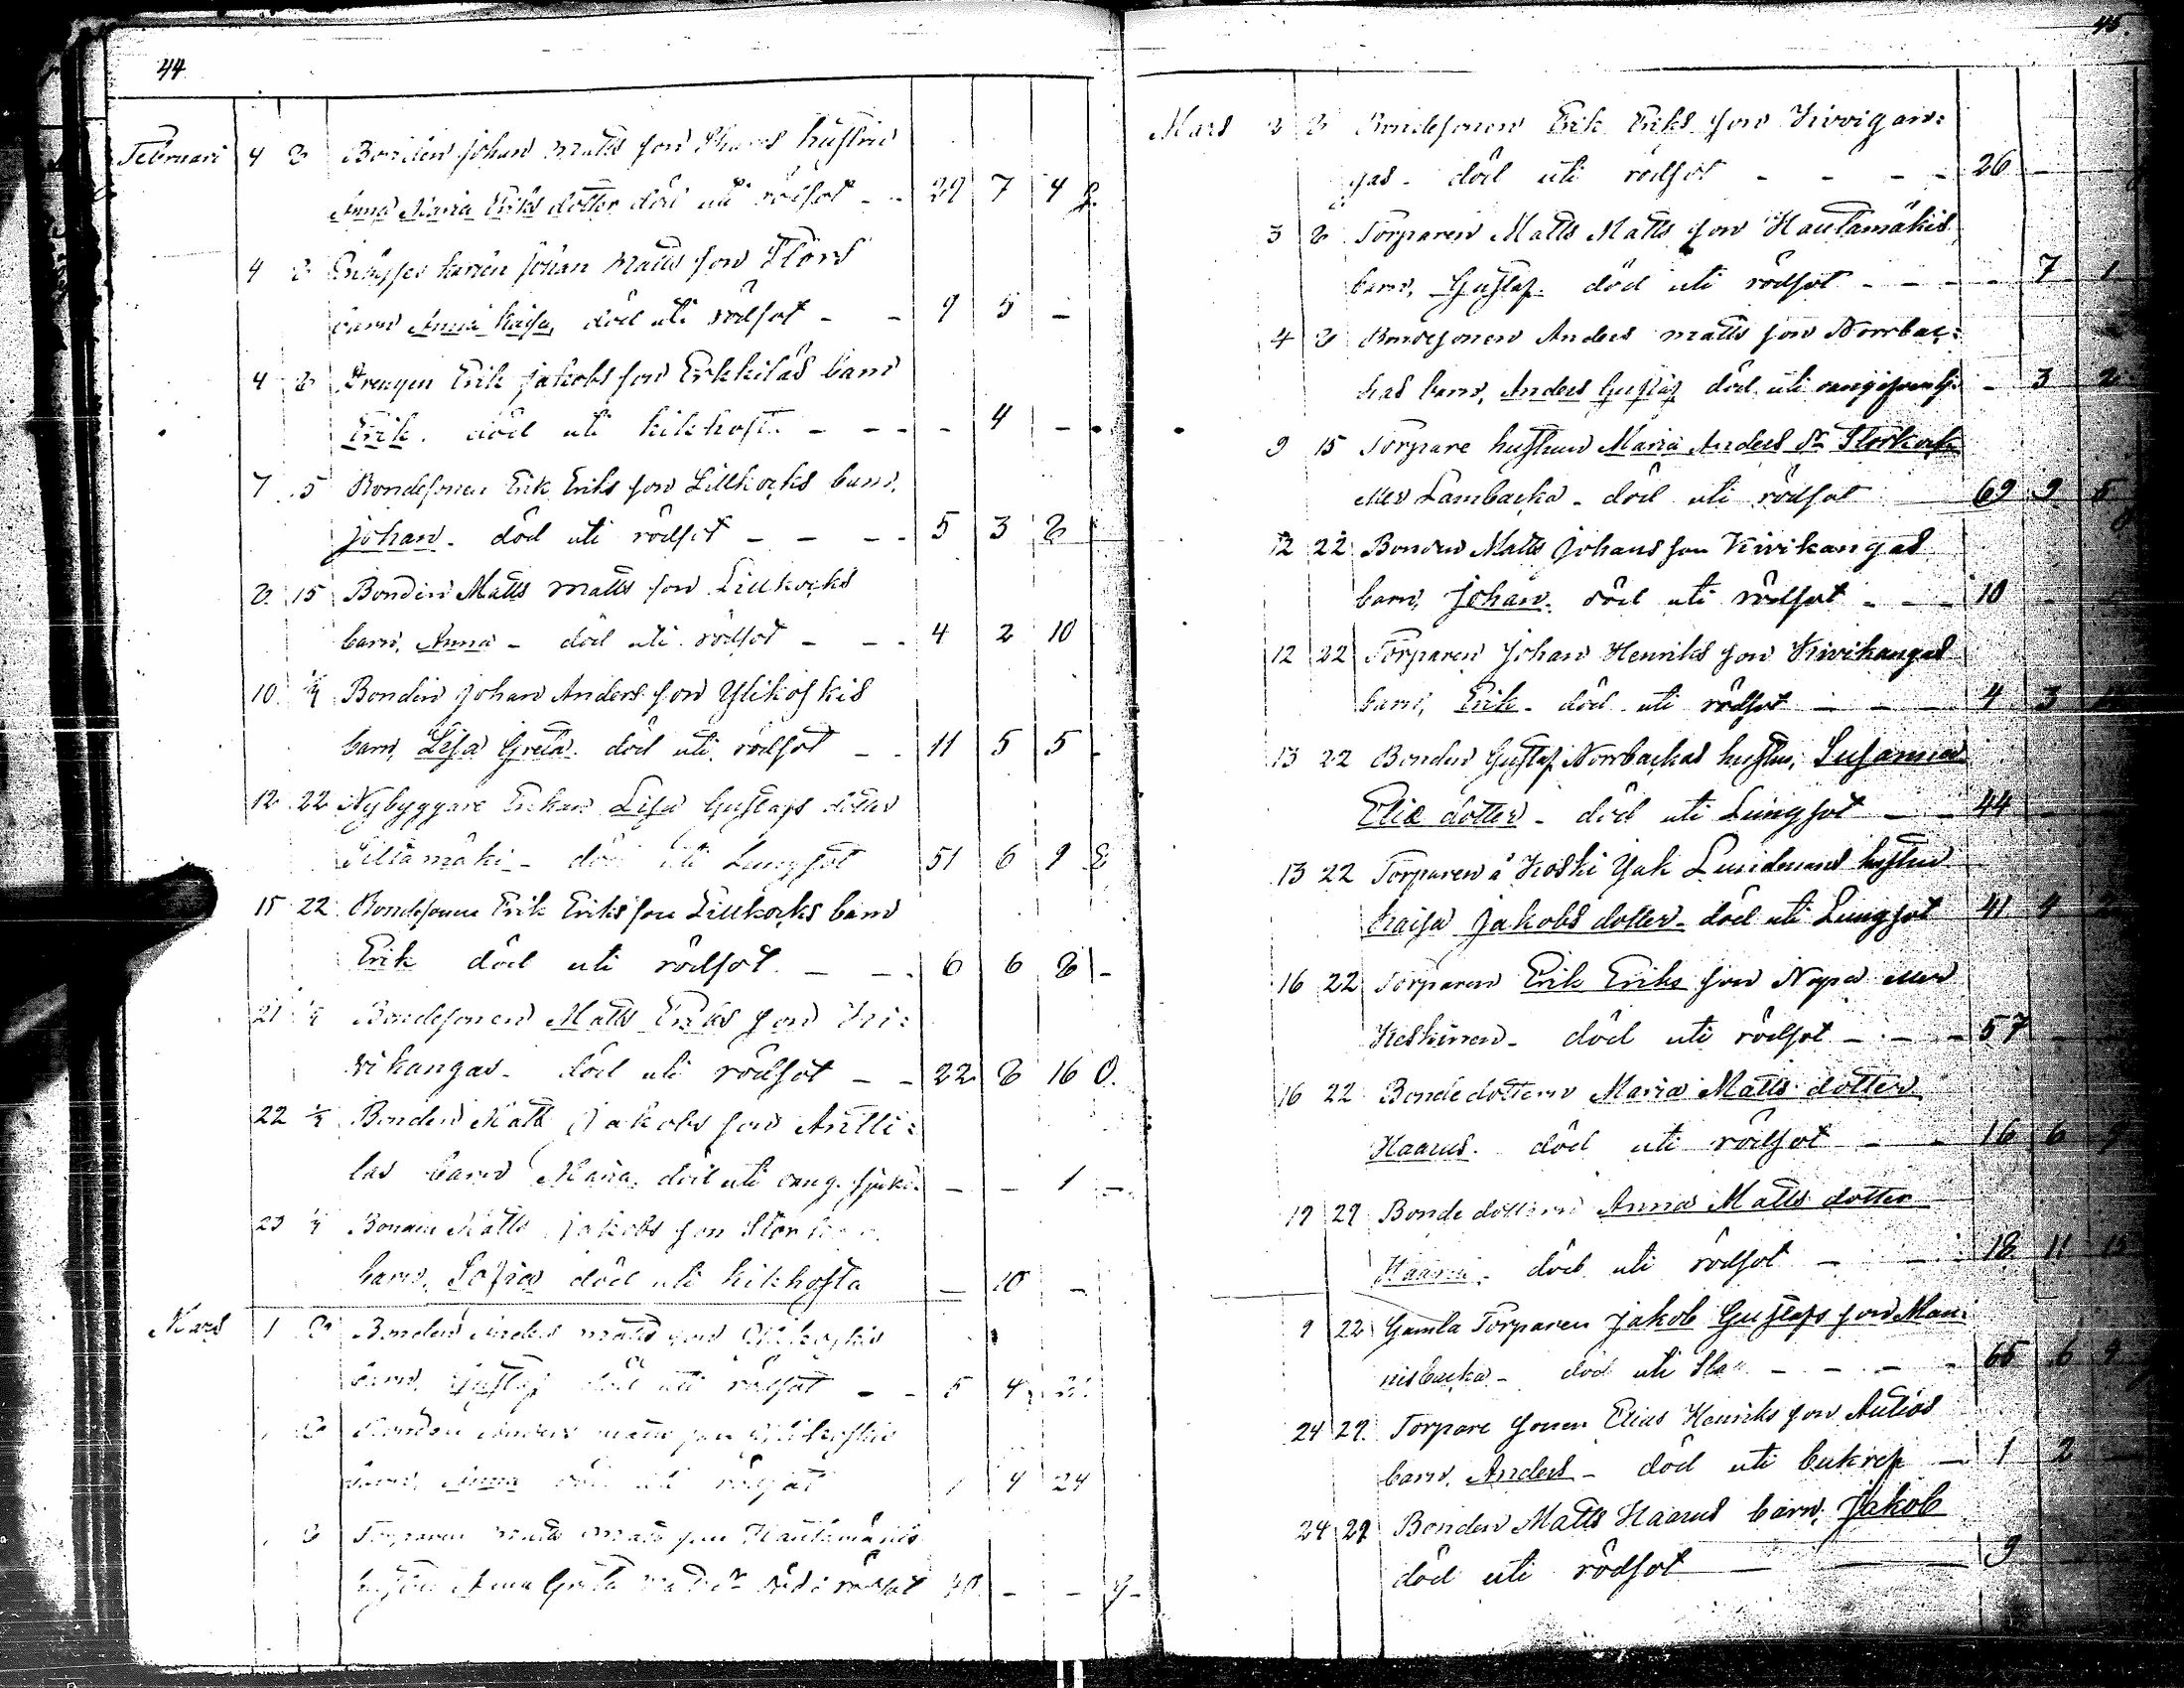 44
Februari 4 8 Bonden Johan Matts son Skares hustru
Anna Maria Eriks dotter död uti rödsot - - 29 7 4 g.
4 8 Johan Matts son Störs
barn Anna Kaisa, död uti rödsot - - 9 5 -
4 8 Drengen Erik Jakobs son Erkkiläs barn
Erik. död uti kikhosta - - - - 4 -
7 15 Bondesonen Erik Eriks son Lillkocks barn,
Johan - död uti rödsot - - - - 5 3 8
8 15 Bonden Matts Matts son Lillkocks
barn, Anna - död uti rödsot - - - 4 2 10
10 1/4 Bonden Johan Anders son Ylikoskis
barn, Lisa Greta. död uti rödsot - - 11 5 5 -
12 22 Nybyggare Enkan Lisa Gustafs dotter
Siltamäki - död uti Lungsot 51 6 9 E
15 22 Bondesonen Erik Eriks son Lillkocks barn
Erik död uti rödsot - - - 6 6 8 -
21 1/4 Bondesonen Matts Eriks son Ki:
vikangas - död uti rödsot - - 22 8 16 O.
22 1/4 Bonden Matts Jakobs son Antti:
las barn Maria, död uti ang. sjukd. - - 1 -
23 1/4 Bonden Matts Jakobs son Stor
barn, Sofia död uti kikhosta - 10 -
Mars 1 8 Bonden Anders Matts son Ylikoskis
barn, Gustaf död uti rödsot - - 5 4
8 Bonden Anders Matts son Ylikoskis
barn, Anna död uti rödsot 1 4 24
8 Torparen Matts Matts son Hautamäkis
hustru Anna Greta död i rödsot - - g -
45.
Mars 2 8 Bondesonen Erik Eriks son Kivigan:
gas - död uti rödsot - - - - 26 -
3 8 Torparen Matts Matts son Hautamäkis
barn, Gustaf. död uti rödsot - - - - 7 1
4 8 Bondesonen Anders Matts son Norrbac:
kas barn, Anders Gustaf död uti - 3 2
9 15 Torpare hustrun Maria Anders dr Storkock
eller Lambacka - död uti rödsot 69 9 5
12 22 Bonden Matts Johans son Kivikangas
barn, Johan. död uti rödsot - - - 10 -
12 22 Torparen Johan Henriks son Kivikangas
barn, Erik - död uti rödsot - - - 4 3
13 22 Bonden Gustaf Norrbackas hustru, Susanna
Eliæ dotter - död uti Lungsot - - 44 -
13 22 Torparen å Koski Jak Lundmans hustru
Kaisa Jakobs dotter - död uti Lungsot 41 9
16 22 Torparen Erik Eriks son Nopa eller
Keskinen - död uti rödsot - - - 57 -
16 22 Bondedottern Maria Matts dotter
Haarus. död uti rödsot - - 16 6 9
19 29 Bonde dottern Anna Matts dotter
Haarus - död uti rödsot - - 18 11 15
9 22 Gamla Torparen Jakob Gustafs son Man:
nisbacka - död uti Sla - - - - 65 6 9
24 29 Torpare sonen Elias Henriks son Autios
barn, Anders - död uti bukref - 1 2 -
24 29 Bonden Matts Haarus barn, Jakob
död uti rödsot - - 9 -